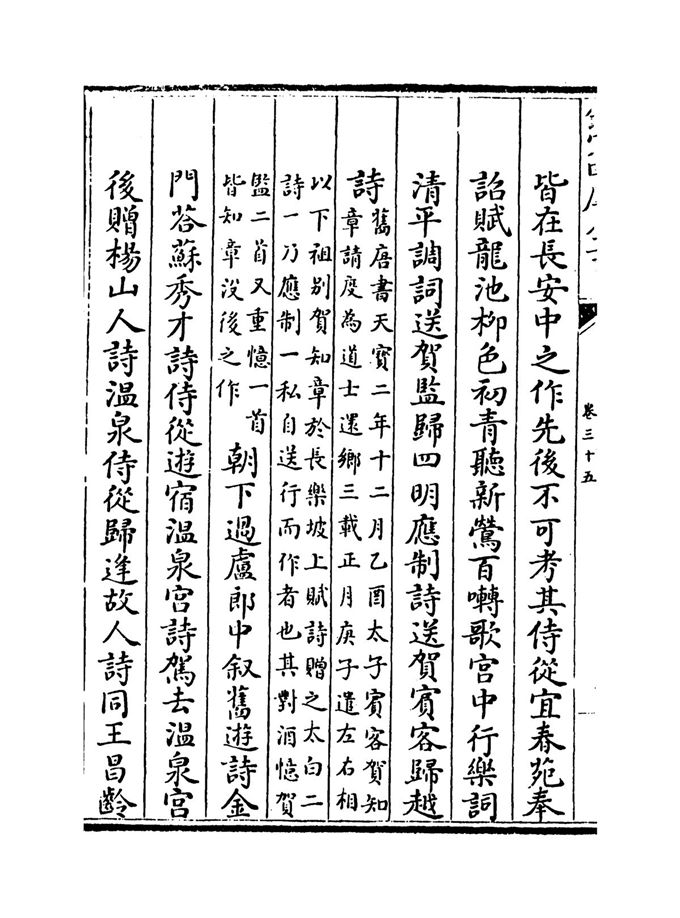 卷三十五
皆在長安中之作先後不可考其侍從宜春苑奉
詔賦龍池柳色初青聽新鶯百囀歌宮中行樂詞
清平調詞送賀監歸四明應制詩送賀賓客歸越
詩
舊唐書天寶二年十二月乙酉太子賓客賀知
章請度為道士還鄉三載正月庚子遣左右相
以下祖別賀知章於長樂坡上賦詩贈之太白二
詩一乃應制一私自送行而作者也其對酒憶賀
監二首又重憶一首
皆知章没後之作
朝下過盧郎中叙舊遊詩金
門荅蘇秀才詩侍從遊宿溫泉宮詩駕去溫泉宮
後贈楊山人詩溫泉侍從歸逢故人詩同王昌齡